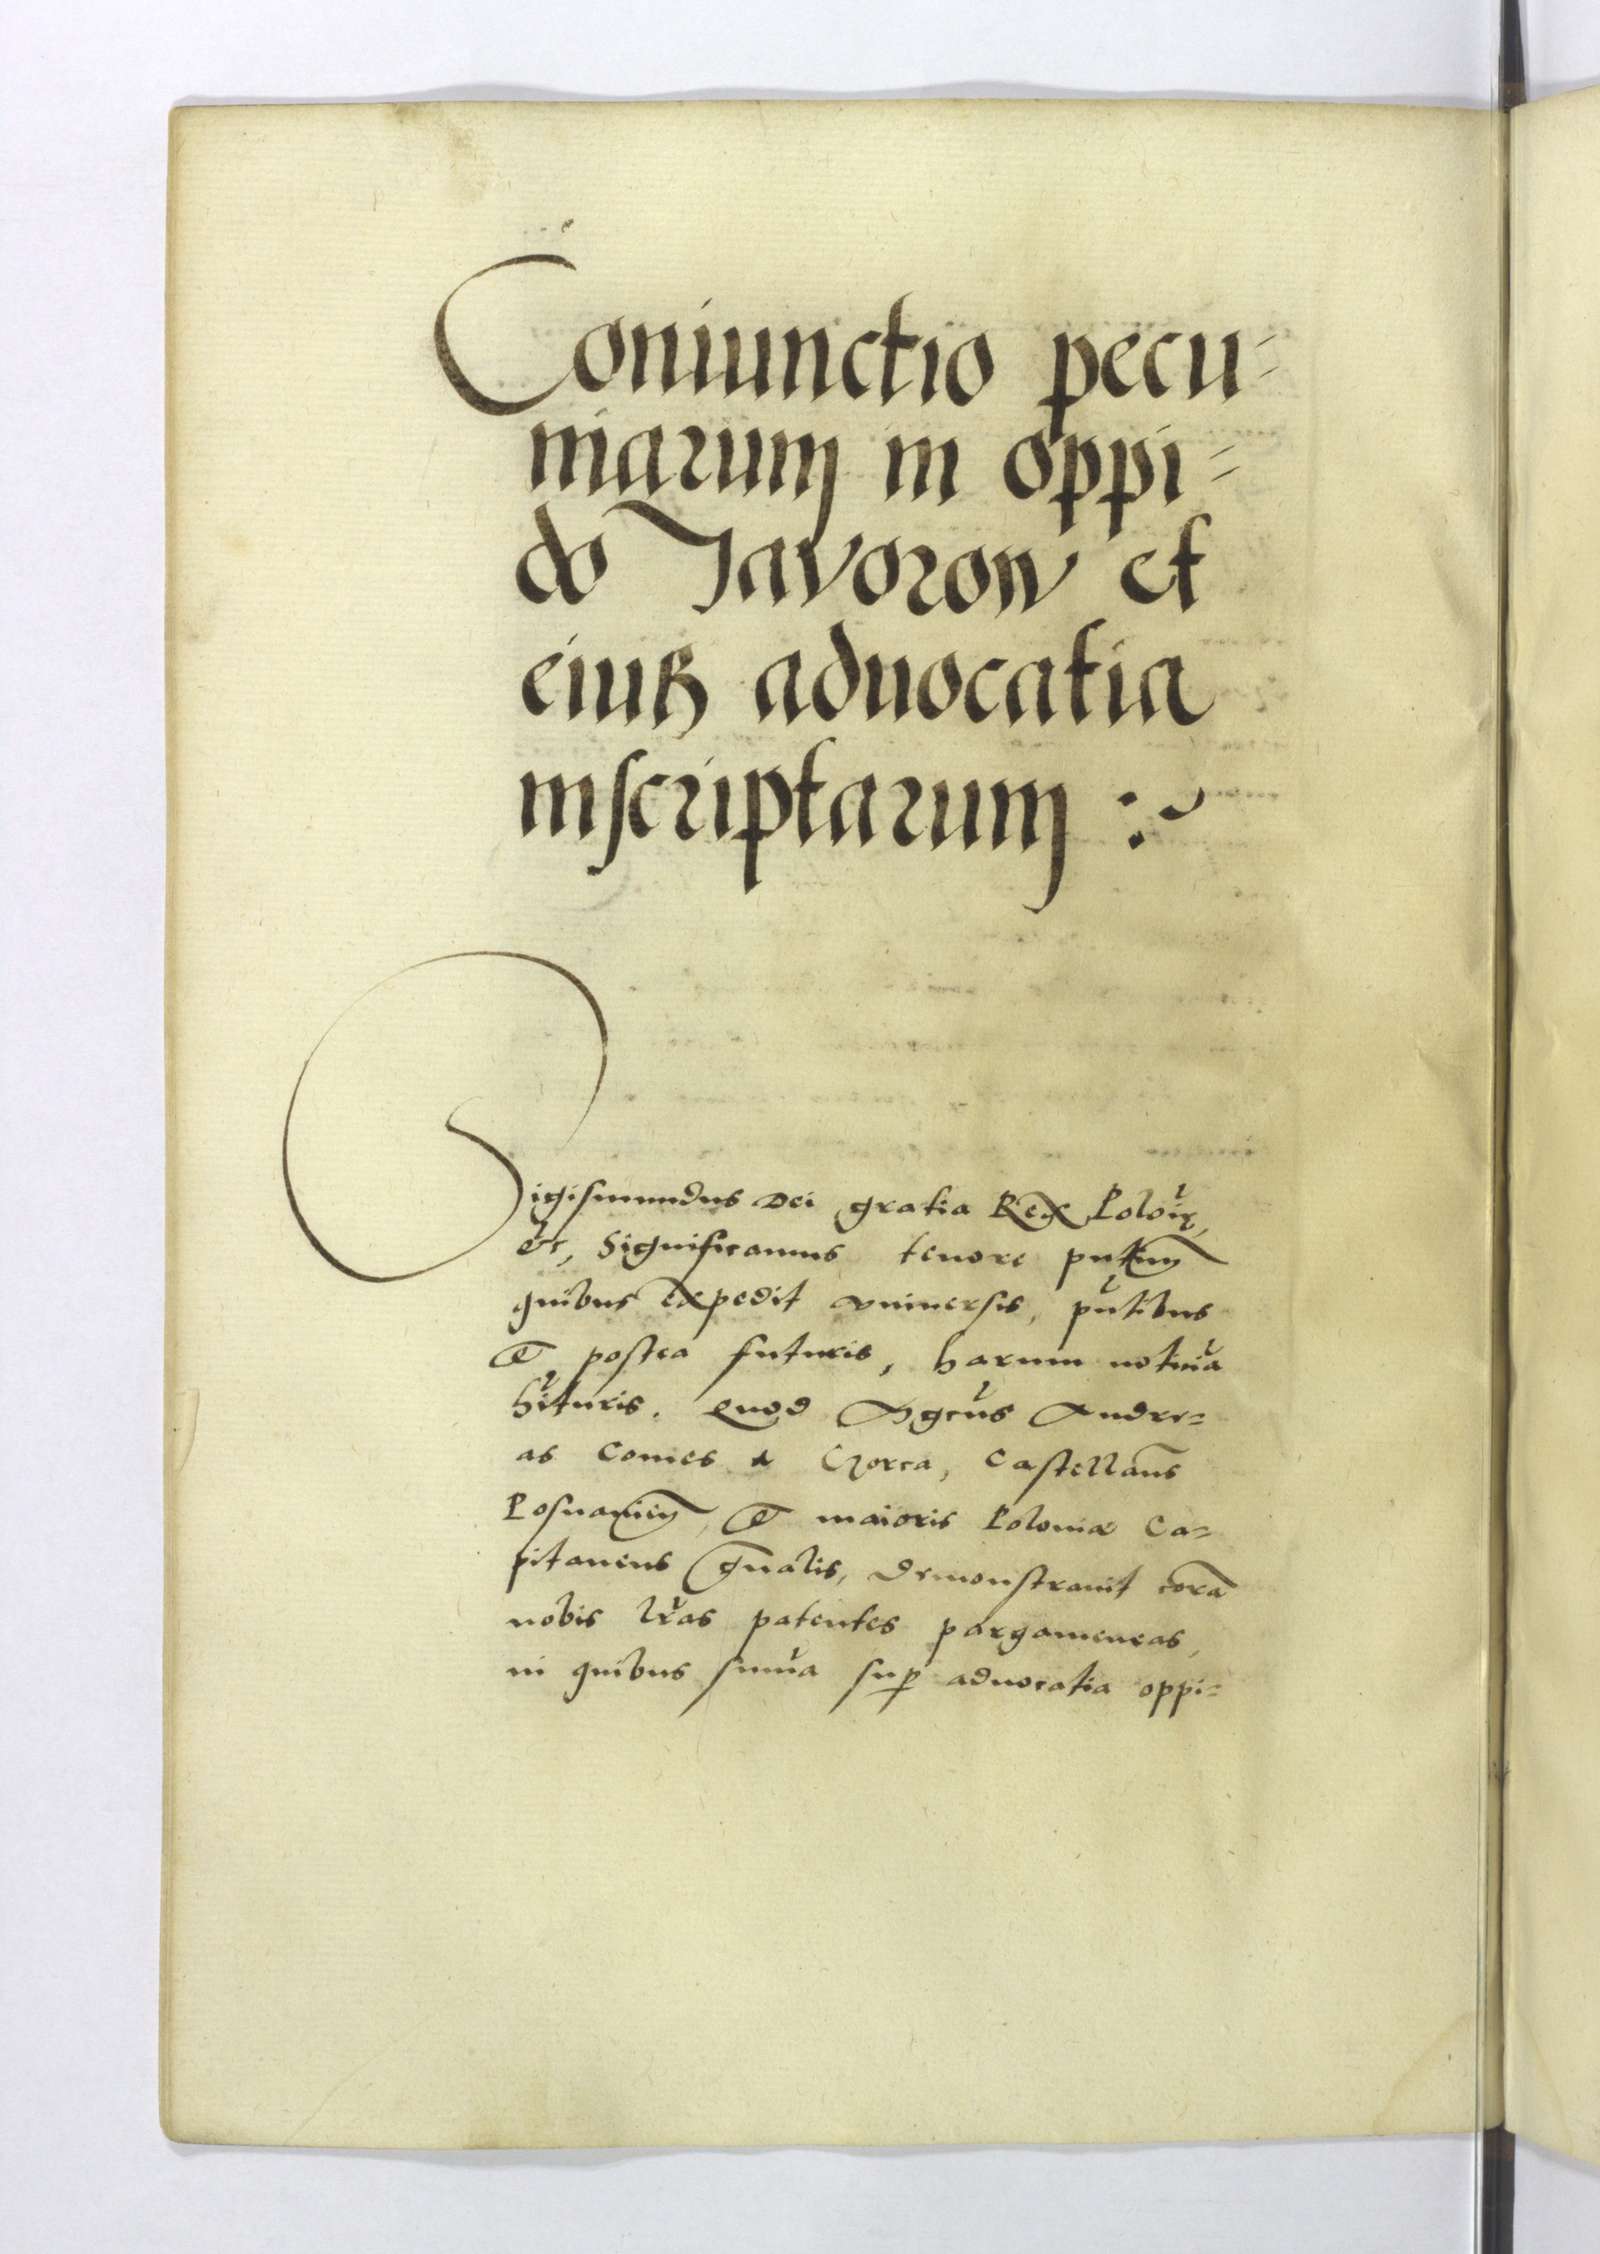 Coniunctio pecu=
niarum in oppi=
do Javorow et
eius advocatia
inscriptarum
Sigismundus Dei gratia Rex Polonie,
etc, Significamus tenore pntium
quibus expedit vniversis, pntibus
et postea futuris, harum notitia
hituris. Quod Mgcus Andre=
as Comes a Gorca, Castellanus
Posnanien, et maioris Poloniae Ca=
pitaneus gnalis, demonstravit cora
nobis lras patentes pargameneas,
in quibus summa sup advocatia oppi=